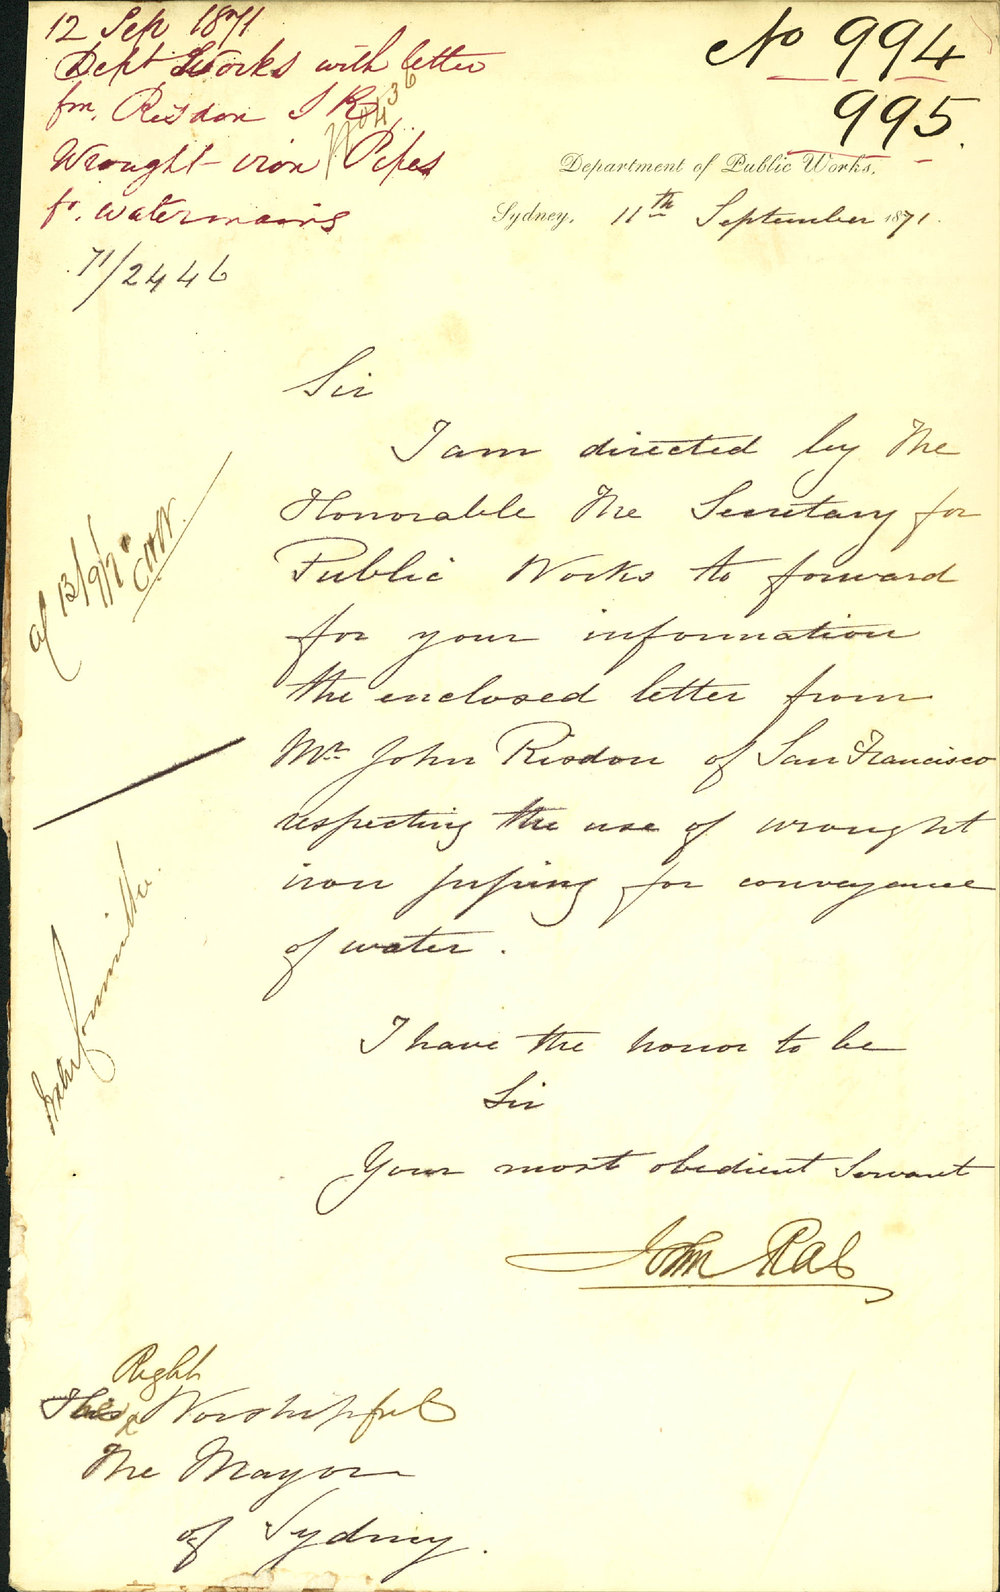 12 Sep 1871
Dept Works with letter
fm. Risdon J
Wrought iron Pipes
fr. watermains
71/2446
No 994
995.
Department of Public Works,
Sydney, 11th September 1871.
Sir
I am directed by The
Honorable The Secretary for
Public Works to forward
for your information
the enclosed letter from
Mr. John Risdon of San Francisco
respecting the use of wrought
iron piping for conveyance
of water.
I have the honor to be
Sir
Your most obedient Servant
John Rae
13/9/71
Water Committee.
Right
The Worshipful
The Mayor
of Sydney.